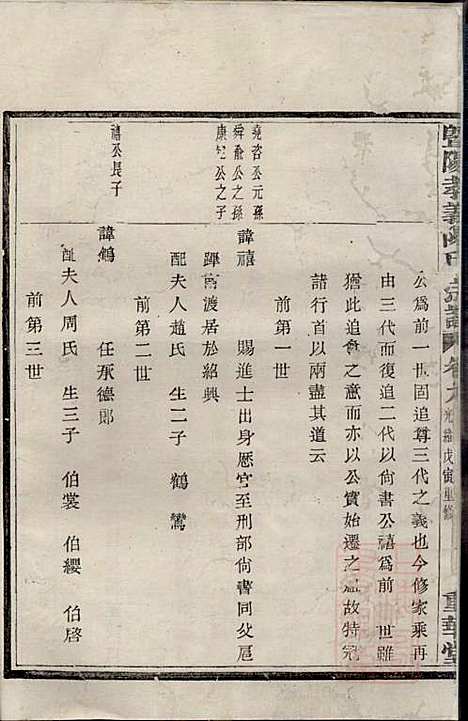 暨陽孝義陳氏宗譜 卷九 光緒戊寅重修 重華堂
公爲前一世固追尊三代之義也今修家乘再
由三代而復追二代以尙書公禧爲前 世雖
猶此追 之意而亦以公實始遷之 故特冠
諸行首以兩盡其道云
前第一世
堯咨公元孫
舜兪公之孫
康 公之子
諱禧 賜進士出身歷官至刑部尙書同父扈
蹕南渡居於紹興
配夫人趙氏 生二子 鶴 鸞
前第二世
禧公長子
諱鶴 任承德郎
配夫人周氏 生三子 伯裳 伯纓 伯啓
前第三世